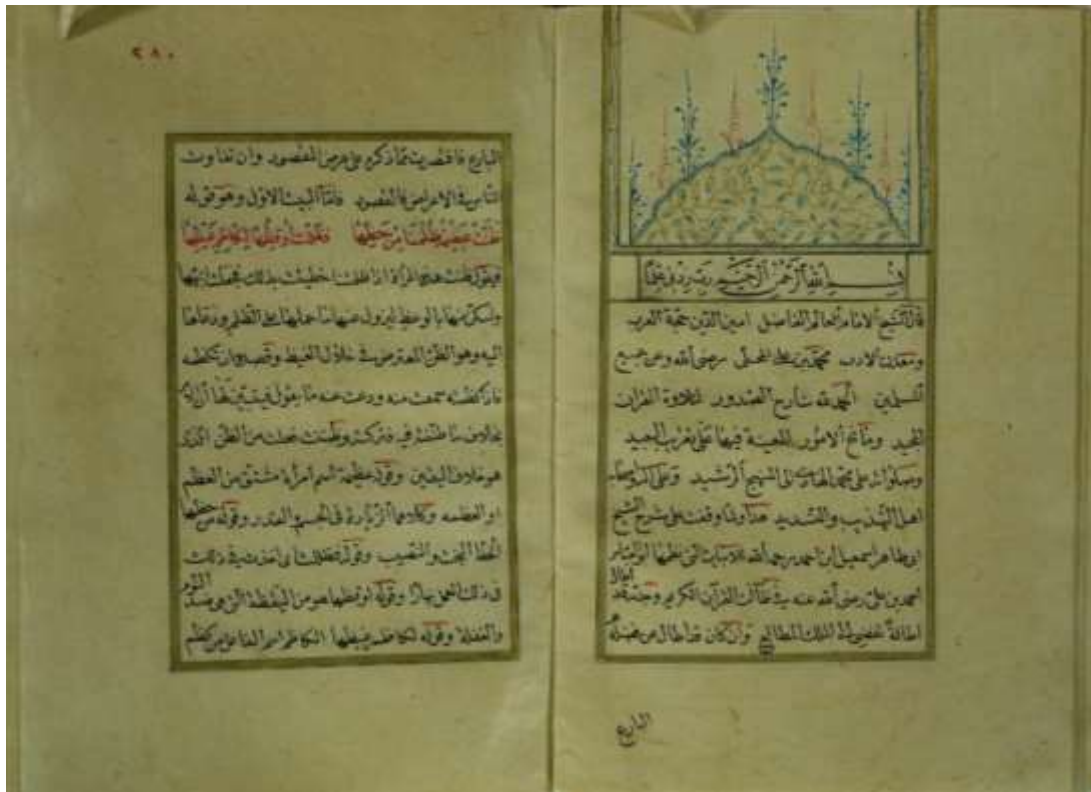 بسم الله الرحمن الرحيم رب زدني علما
قال الشيخ الامام العالم الفاضل امين الدين حجة العرب
ومعدن الادب محمد بن علي المحلى رضى الله وعن جميع
المسلمين الحمد لله شارح الصدور لتلاوة القران
المجيد ومانح الامور المعينة فيها على تقريب البعيد
وصلواته على محمد الهادى الى النهج الرشيد وعلى اله وصحابه
اهل التهذيب والتسديد هذا ولما وقفت على شرح الشيخ
ابى طاهر اسمعيل ابن احمد رحمه الله للابيات التى نظمها ابو العباس
احمد بن على رضى الله عنه في ظاآت القرآن الكريم وجدته قد اطال
اطالة الملك المطالع وان كان قد اطال من فضله
البارع
٢٨٠
البارع فاقتصرت مما ذكره على غرض المقصود وان تفاوت
الناس في الاغراض فالمقصود فاما البيت الاول وهو قوله
ظنت عظيمة ظلمنا من حظها فظللت اوقظها لكاظم غيظها
فيقول ظنت هذه المراة اذا ظلمت احظيت بذلك فجعلت انبهها
واسكن منها بالوعظ ليزول عنها ما حملها على الظلم ودعاها
اليه وهو الظن المعترض في خلال الغيظ وقصدى ان تكظمه
فان كظمته سمعت منه ودعت عنه ما يقول فيتبين لها ان الامر
بخلاف ما ظنت فيه فتركته وظنت فعلت من الظن الذى
هو خلاف اليقين وقوله عظيمة اسم امراة مشتق من العظم
او العظمه وكلاهما الزيادة في الجسم والقدر وقوله من حظها
الحظ البخت والنصيب وقوله فظللت اى اخذت في ذلك
في ذلك افعل نهارا وقوله اوقظها هو من اليقظة التى هى ضد النوم
والغفلة وقوله لكاظم غيظها الكاظم اسم الفاعل من كظم